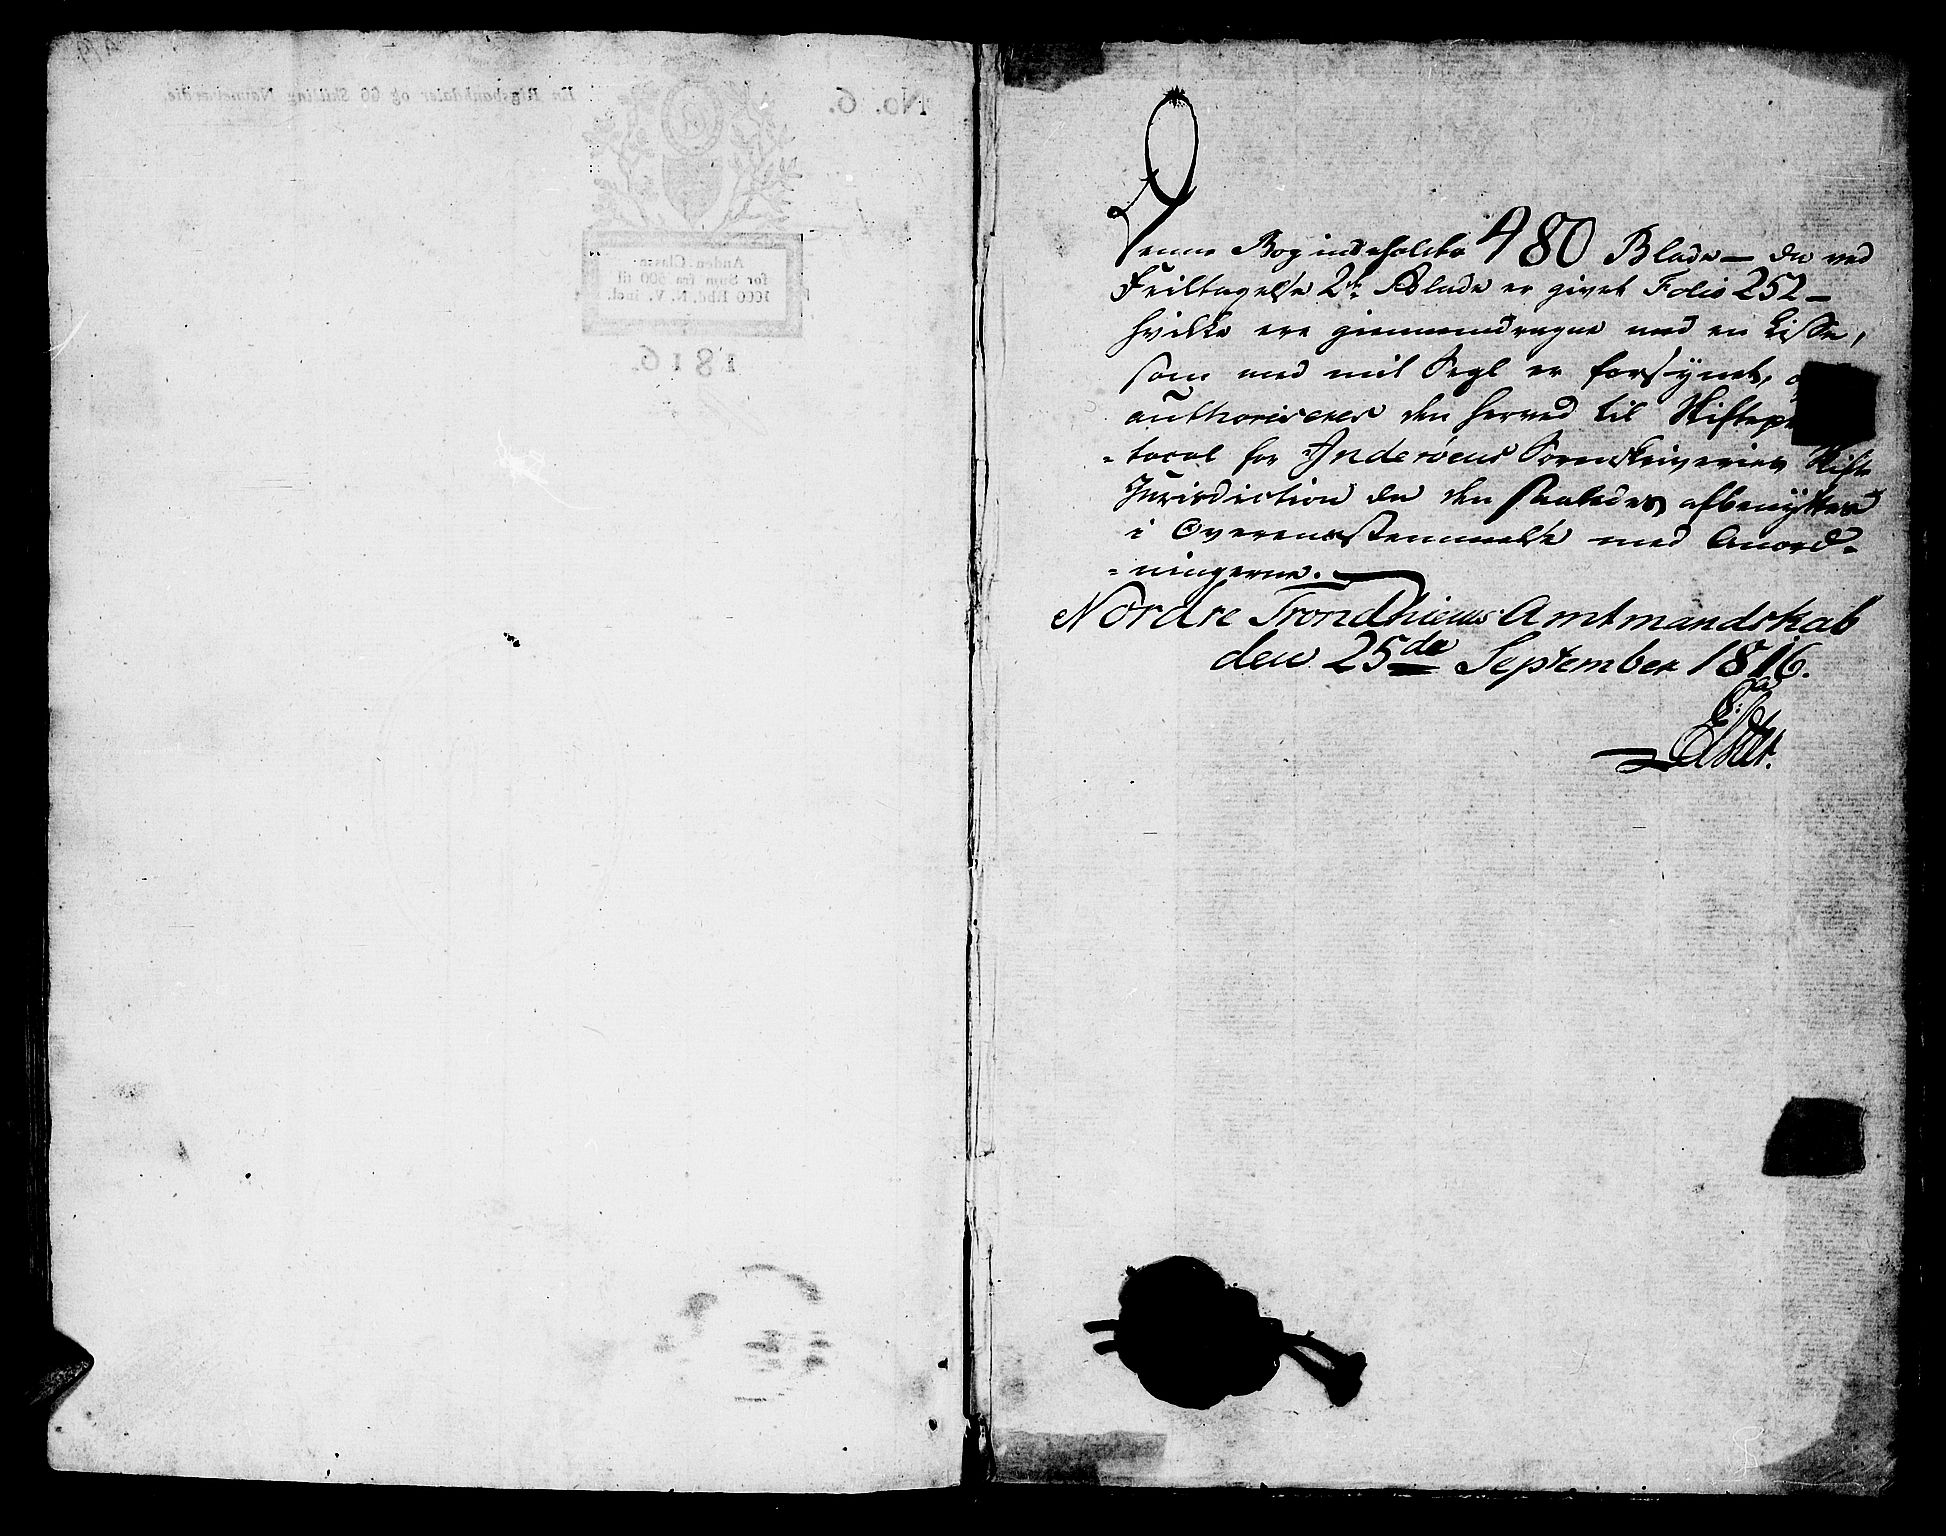 No. 6.
Een Rigsbankdaler og 66 Skilling Navneværdie.
Anden Classe
for Sum fra 500 til
1000 Rbd. N. V. incl.
1816.
Denne Bog indeholder 480 Blade – da ved
Feiltagelse 2de Blade er givet Folio 252 –
hvilke ere giennemdragne med en Lisse,
som med mit Segl er forsynet,
authoriseres den herved til Skiftepro
=tocol for Inderøens Sorenskriveries Skifte
Jurisdiction da den saaledes afbenyttes
i Overensstemmelse med Anord=
=ningerne.
Nordre Trondhiems Amtmandskab
den 25de September 1816.
Elster.